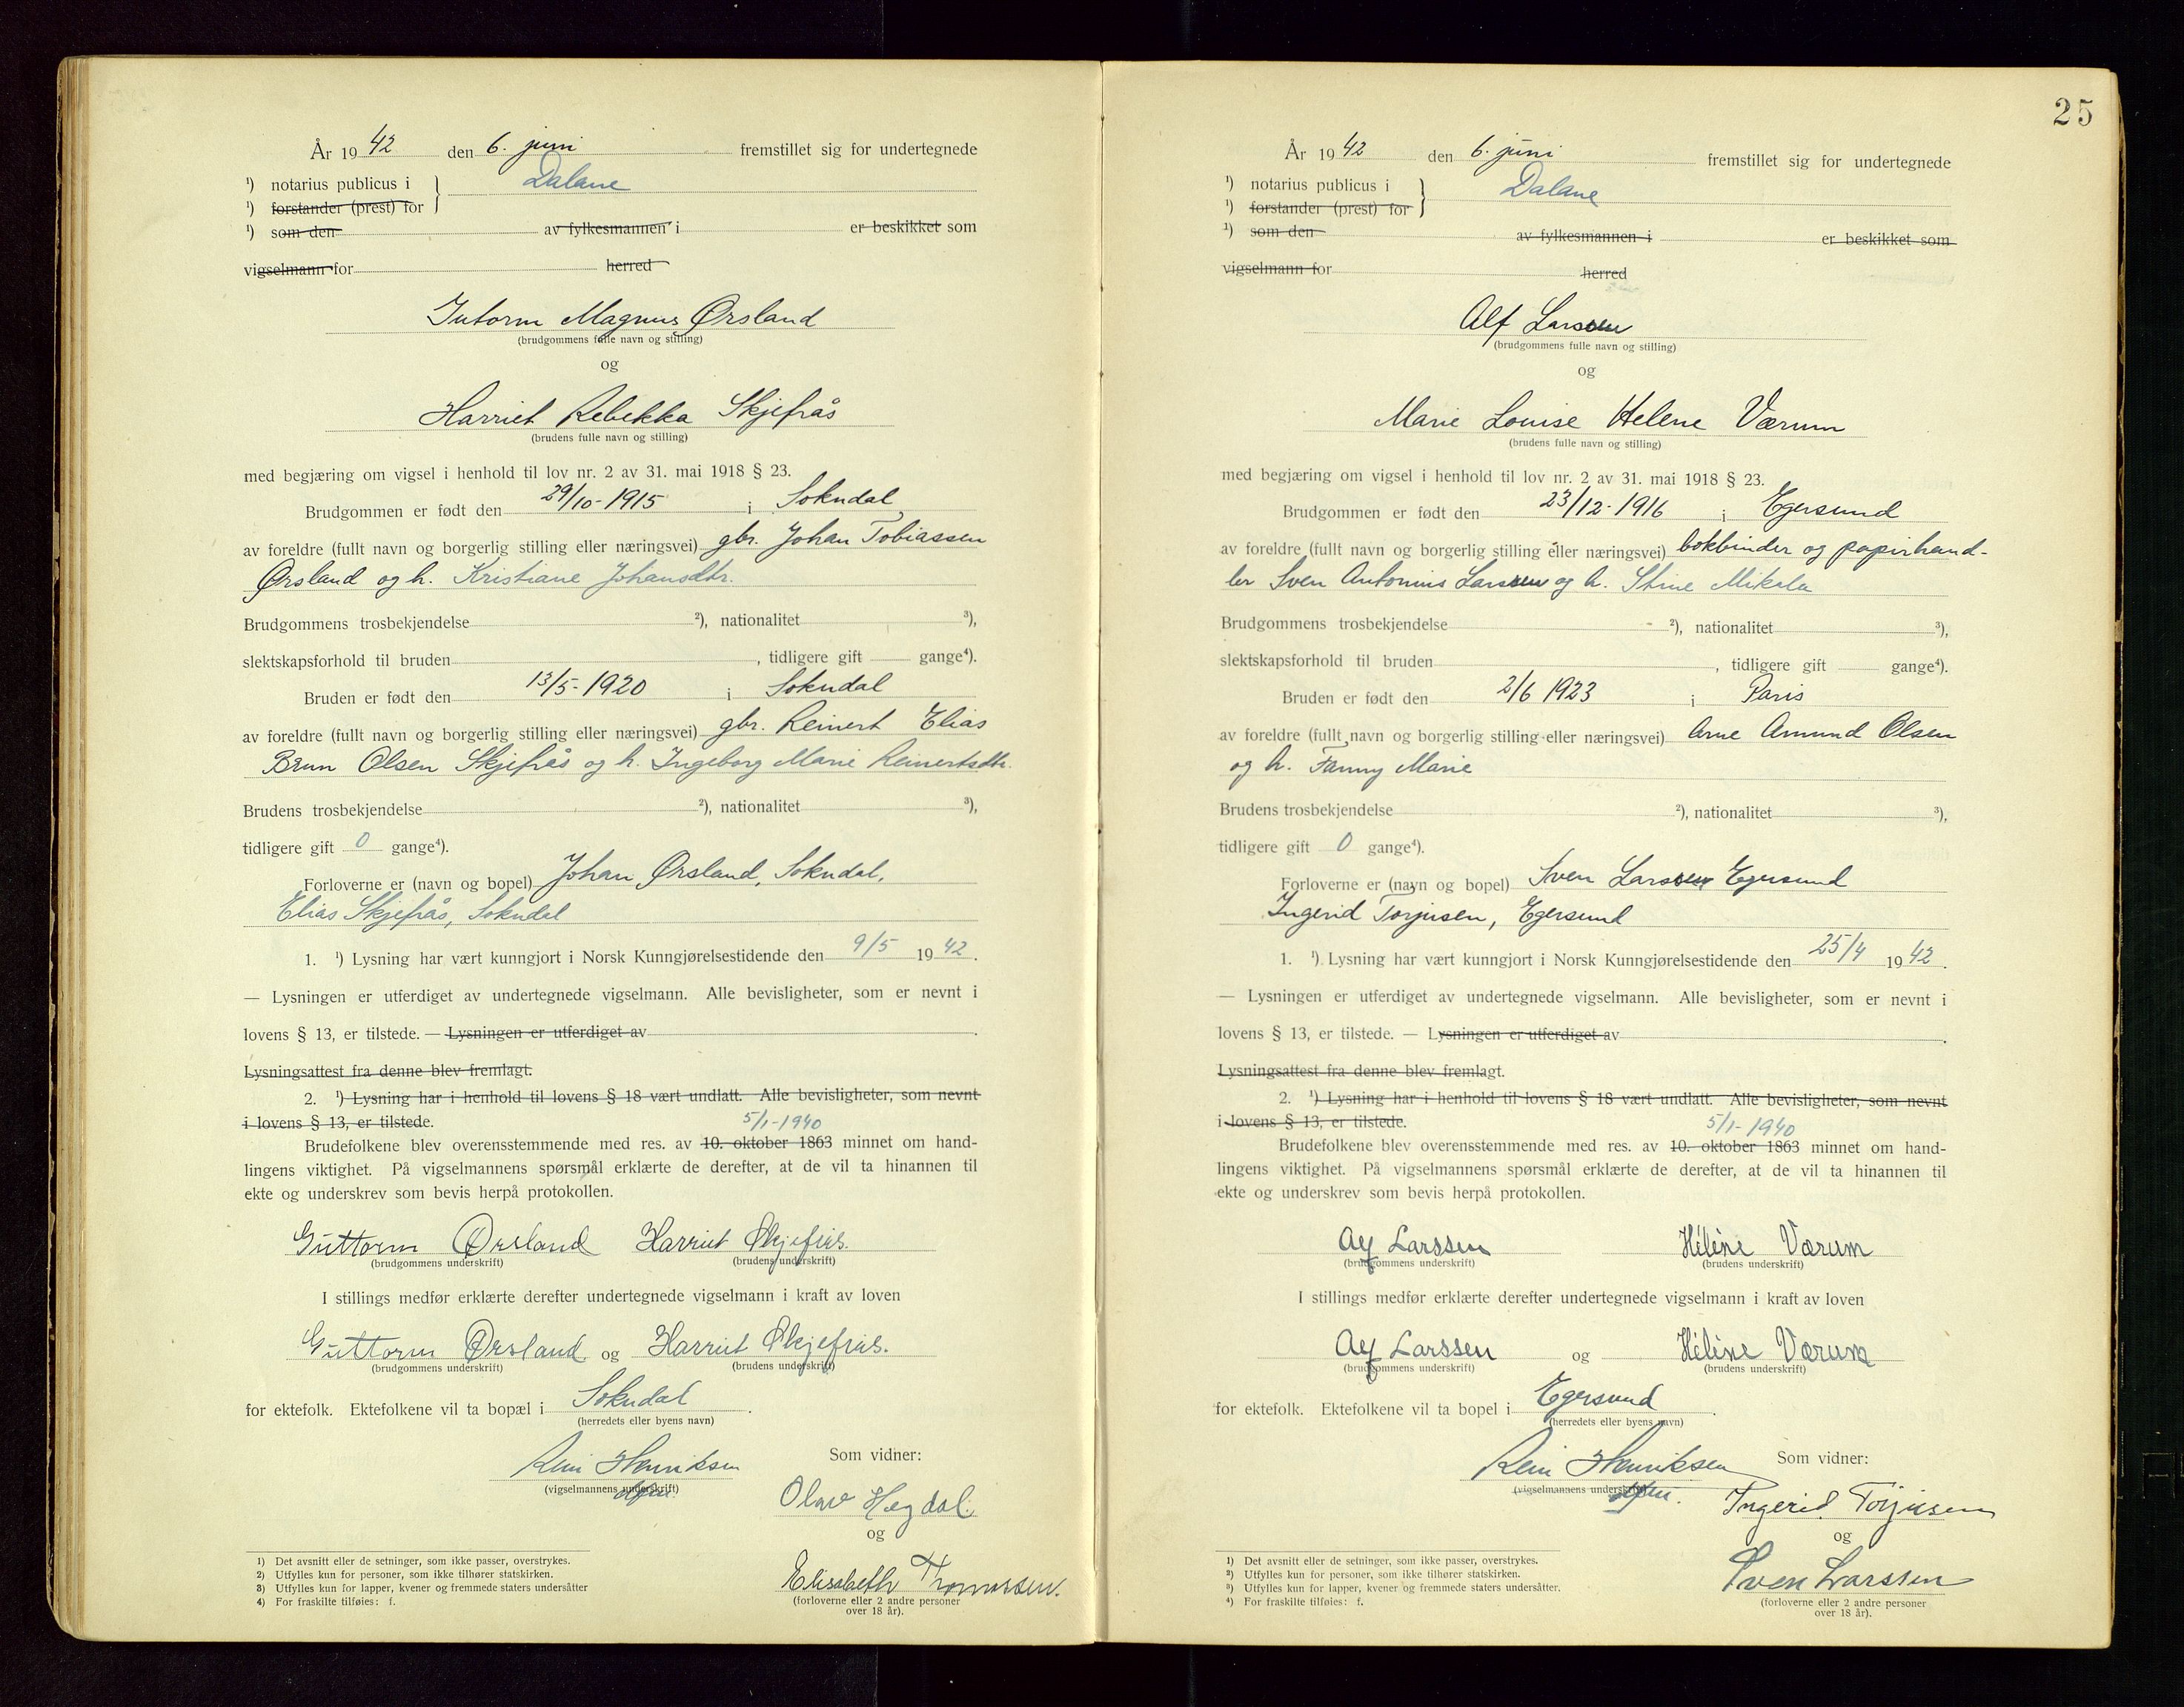 År 1942 den 6. juni fremstillet sig for undertegnede
¹) notarius publicus i } Dalane
¹) forstander (prest) for
¹) som den av fylkesmannen i er beskikket som
vigselmann for herred
Gutorm Magnus Ørsland
(brudgommens fulle navn og stilling)
og
Harriet Rebekka Skjefrås
(brudens fulle navn og stilling)
med begjæring om vigsel i henhold til lov nr. 2 av 31. mai 1918 § 23.
Brudgommen er født den 29/10-1915 i Sokndal
av foreldre (fullt navn og borgerlig stilling eller næringsvei) gbr. Johan Tobiassen
Ørsland og h. Kristiane Johansdtr.
Brudgommens trosbekjendelse ²), nationalitet ³),
slektskapsforhold til bruden , tidligere gift gange⁴).
Bruden er født den 13/5-1920 i Sokndal
av foreldre (fullt navn og borgerlig stilling eller næringsvei) gbr. Reinert Elias
Brun Olsen Skjefrås og h. Ingeborg Marie Reinertsdtr.
Brudens trosbekjendelse ²), nationalitet ³),
tidligere gift 0 gange⁴).
Forloverne er (navn og bopel) Johan Ørsland, Sokndal,
Elias Skjefrås, Sokndal
1. ¹) Lysning har vært kunngjort i Norsk Kunngjørelsestidende den 9/5 1942.
— Lysningen er utferdiget av undertegnede vigselmann. Alle bevisligheter, som er nevnt i
lovens § 13, er tilstede. — Lysningen er utferdiget av .
Lysningsattest fra denne blev fremlagt.
2. ¹) Lysning har i henhold til lovens § 18 vært undlatt. Alle bevisligheter, som nevnt
i lovens § 13, er tilstede. 5/1-1940
Brudefolkene blev overensstemmende med res. av 10. oktober 1863 minnet om hand-
lingens viktighet. På vigselmannens spørsmål erklærte de derefter, at de vil ta hinannen til
ekte og underskrev som bevis herpå protokollen.
Guttorm Ørsland Harriet Skjefrås.
(brudgommens underskrift) (brudens underskrift)
I stillings medfør erklærte derefter undertegnede vigselmann i kraft av loven
Guttorm Ørsland og Harriet Skjefrås.
(brudgommens underskrift) (brudens underskrift)
for ektefolk. Ektefolkene vil ta bopæl i Sokndal .
(herredets eller byens navn)
Rein Henriksen Som vidner:
(vigselmannens underskrift)
Olav Hegdal.
og
Elisabeth Thomassen.
(forloverne eller 2 andre personer
over 18 år).
1) Det avsnitt eller de setninger, som ikke passer, overstrykes.
2) Utfylles kun for personer, som ikke tilhører statskirken.
3) Utfylles kun for lapper, kvener og fremmede staters undersåtter
4) For fraskilte tilføies: f.
25
År 1942 den 6. juni fremstillet sig for undertegnede
¹) notarius publicus i } Dalane
¹) forstander (prest) for
¹) som den av fylkesmannen i er beskikket som
vigselmann for herred
Alf Larssen
(brudgommens fulle navn og stilling)
og
Marie Louise Helene Værum
(brudens fulle navn og stilling)
med begjæring om vigsel i henhold til lov nr. 2 av 31. mai 1918 § 23.
Brudgommen er født den 23/12-1916 i Egersund
av foreldre (fullt navn og borgerlig stilling eller næringsvei) bokbinder og papirhand-
ler Sven Antonius Larssen og h. Stine Mikala
Brudgommens trosbekjendelse ²), nationalitet ³),
slektskapsforhold til bruden , tidligere gift gange⁴).
Bruden er født den 2/6 1923 i Paris
av foreldre (fullt navn og borgerlig stilling eller næringsvei) Arne Amund Olsen
og h. Fanny Marie
Brudens trosbekjendelse ²), nationalitet ³),
tidligere gift 0 gange⁴).
Forloverne er (navn og bopel) Sven Larssen Egersund
Ingerid Torjusen, Egersund
1. ¹) Lysning har vært kunngjort i Norsk Kunngjørelsestidende den 25/4 1942.
— Lysningen er utferdiget av undertegnede vigselmann. Alle bevisligheter, som er nevnt i
lovens § 13, er tilstede. — Lysningen er utferdiget av .
Lysningsattest fra denne blev fremlagt.
2. ¹) Lysning har i henhold til lovens § 18 vært undlatt. Alle bevisligheter, som nevnt
i lovens § 13, er tilstede. 5/1-1940
Brudefolkene blev overensstemmende med res. av 10. oktober 1863 minnet om hand-
lingens viktighet. På vigselmannens spørsmål erklærte de derefter, at de vil ta hinannen til
ekte og underskrev som bevis herpå protokollen.
Alf Larssen Hélène Værum
(brudgommens underskrift) (brudens underskrift)
I stillings medfør erklærte derefter undertegnede vigselmann i kraft av loven
Alf Larssen og Hélène Værum
(brudgommens underskrift) (brudens underskrift)
for ektefolk. Ektefolkene vil ta bopel i Egersund .
(herredets eller byens navn)
Rein Henriksen Som vidner:
(vigselmannens underskrift)
Ingerid Torjusen
og
Sven Larssen
(forloverne eller 2 andre personer
over 18 år).
1) Det avsnitt eller de setninger, som ikke passer, overstrykes.
²) Utfylles kun for personer, som ikke tilhører statskirken.
³) Utfylles kun for lapper, kvener og fremmede staters undersåtter.
⁴) For fraskilte tilføies: f.